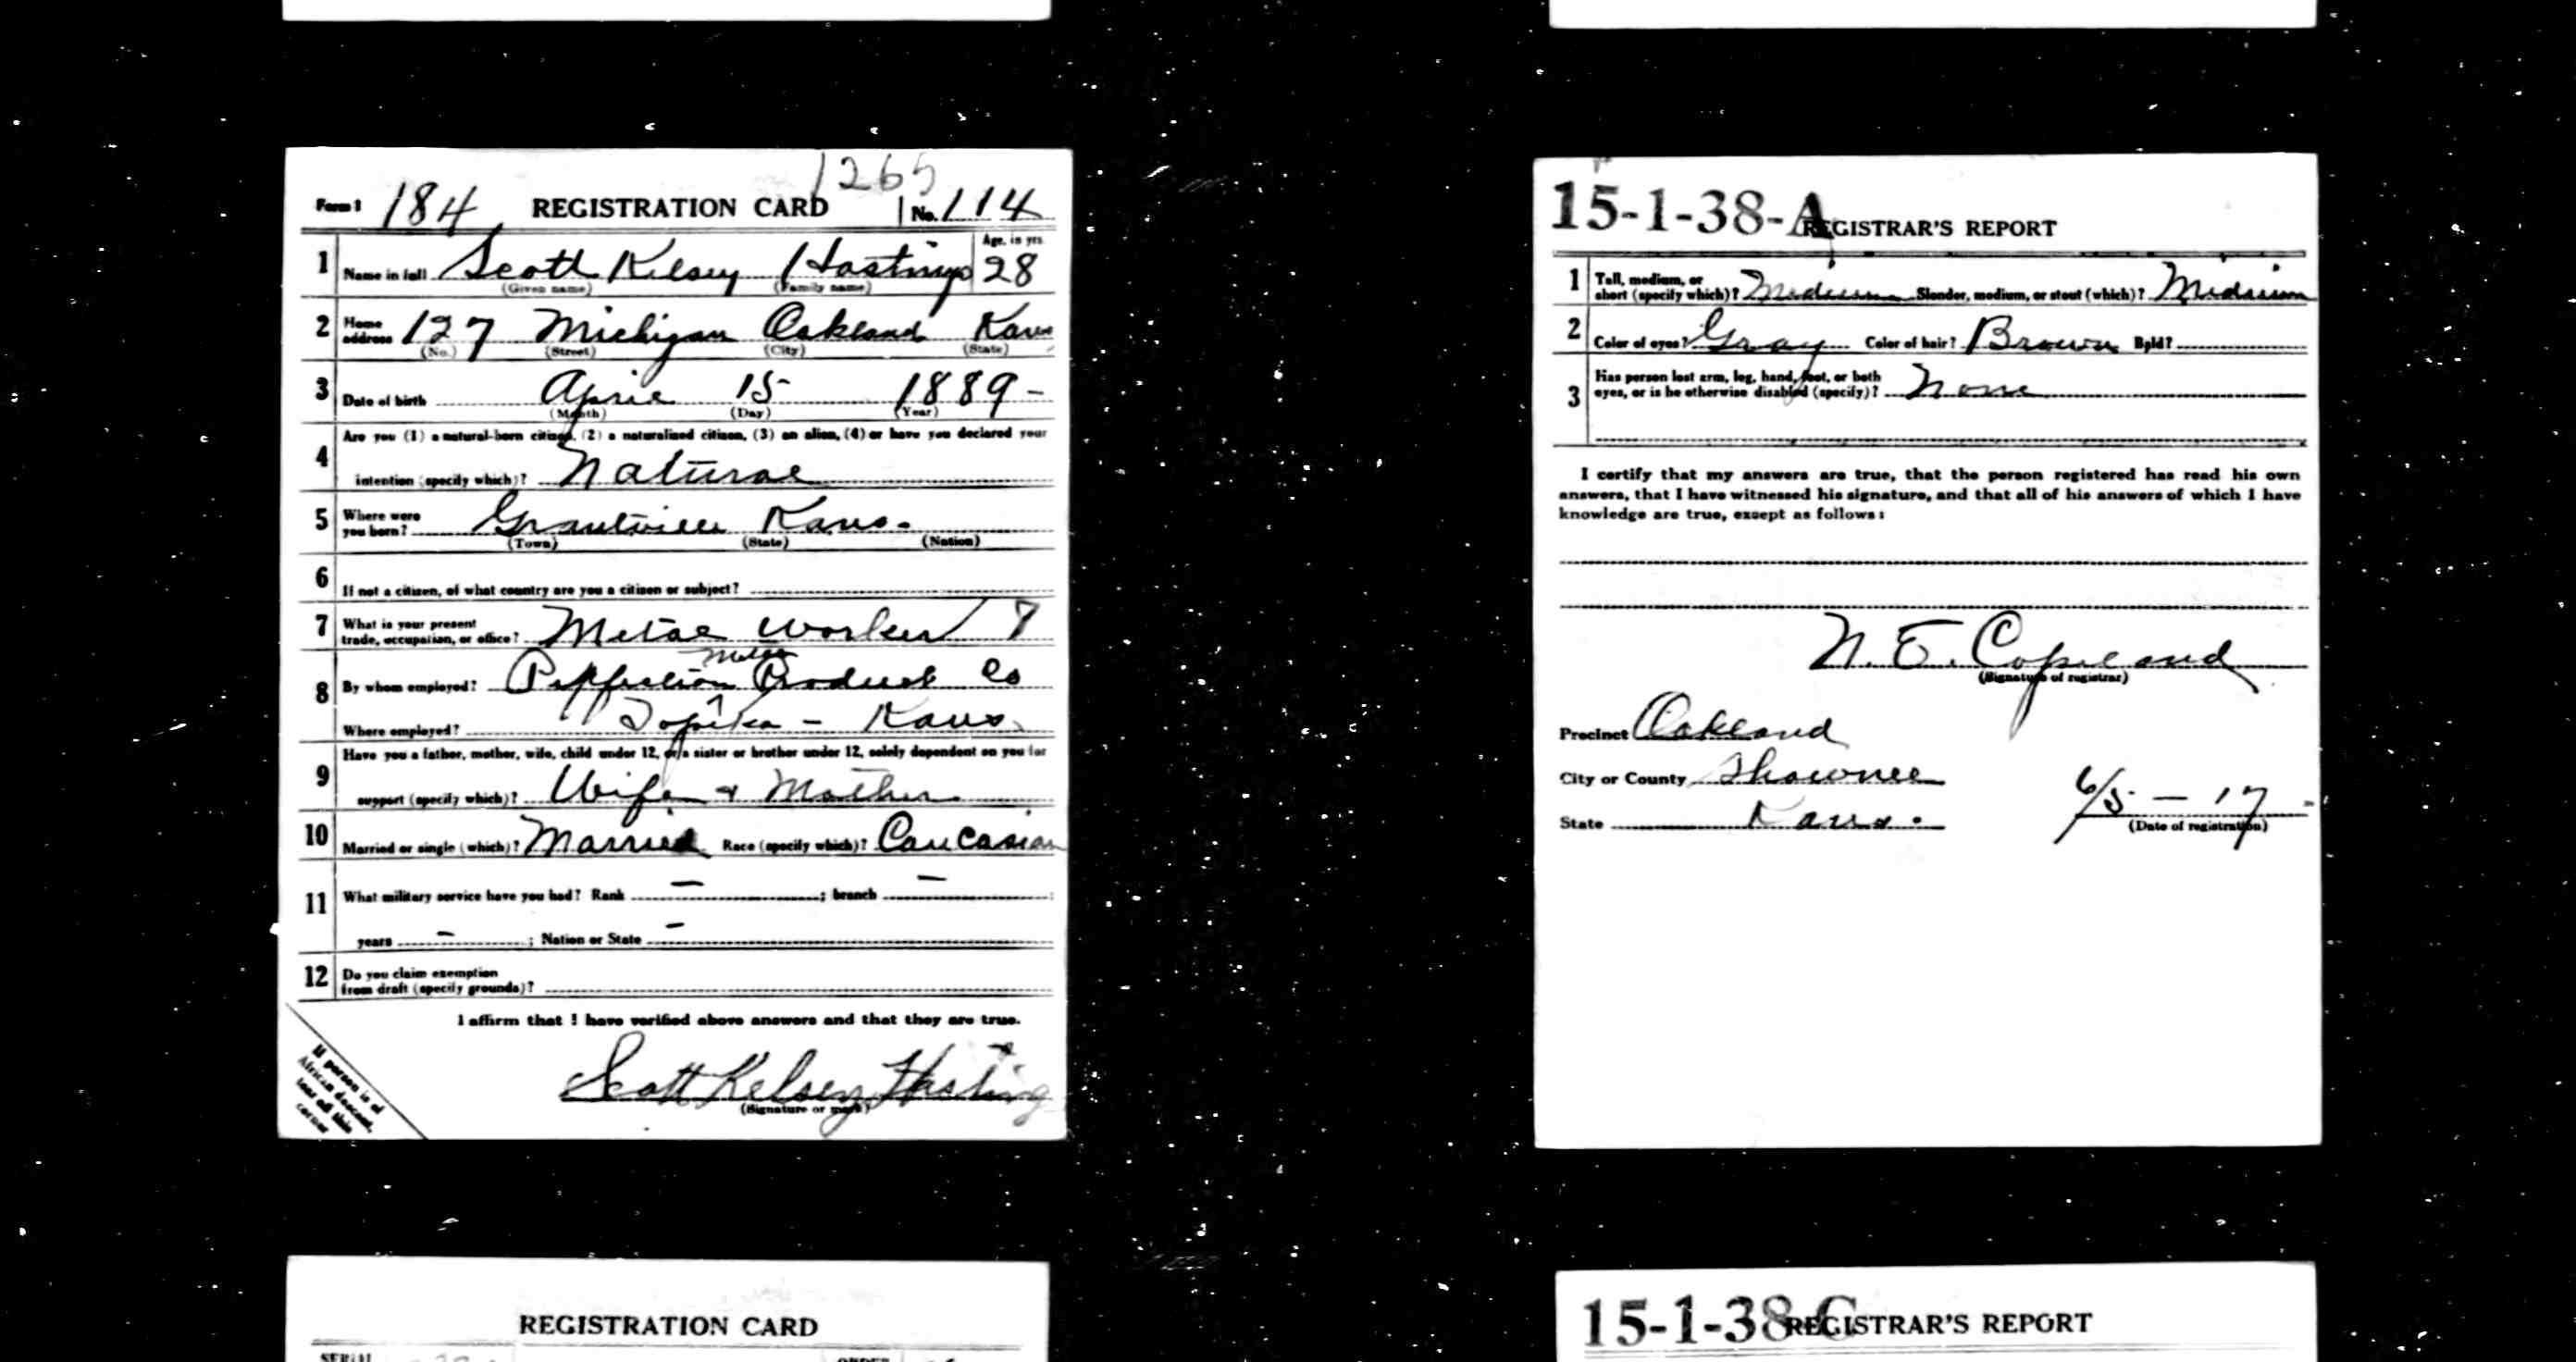 1265
Form 1 184 REGISTRATION CARD No. 114
1 Name in full Scott Kelsey Hastings Age, in yrs 28
(Given name) (Family name)
2 Home address 127 Michigan Oakland Kans
(No.) (Street) (City) (State)
3 Date of birth April 15 1889 -
(Month) (Day) (Year)
4 Are you (1) a natural-born citizen, (2) a naturalized citizen, (3) an alien, (4) or have you declared your
intention (specify which)? Natural
5 Where were you born? Grantville Kans.
(Town) (State) (Nation)
6 If not a citizen, of what country are you a citizen or subject?
7 What is your present trade, occupation, or office? Metal worker 7
8 By whom employed? Metal Product Co
Where employed? Topeka - Kans
9 Have you a father, mother, wife, child under 12, or a sister or brother under 12, solely dependent on you for
support (specify which)? Wife & Mother
10 Married or single (which)? Married Race (specify which)? Caucasian
11 What military service have you had? Rank - ; branch - ;
years - ; Nation or State -
12 Do you claim exemption
from draft (specify grounds)?
I affirm that I have verified above answers and that they are true.
Scott Kelsey Hasting
(Signature or mark)
If person is of
African descent,
tear off this
corner
REGISTRATION CARD
SERIAL ORDER
15-1-38-A REGISTRAR'S REPORT
1 Tall, medium, or
short (specify which)? Medium Slender, medium, or stout (which)? Medium
2 Color of eyes? Gray Color of hair? Brown Bald?
3 Has person lost arm, leg, hand, foot, or both
eyes, or is he otherwise disabled (specify)? None
I certify that my answers are true, that the person registered has read his own
answers, that I have witnessed his signature, and that all of his answers of which I have
knowledge are true, except as follows:
N. E. Copeland
(Signature of registrar)
Precinct Oakland
City or County Shawnee
State Kans.
6/5 - 17
(Date of registration)
15-1-38 C REGISTRAR'S REPORT